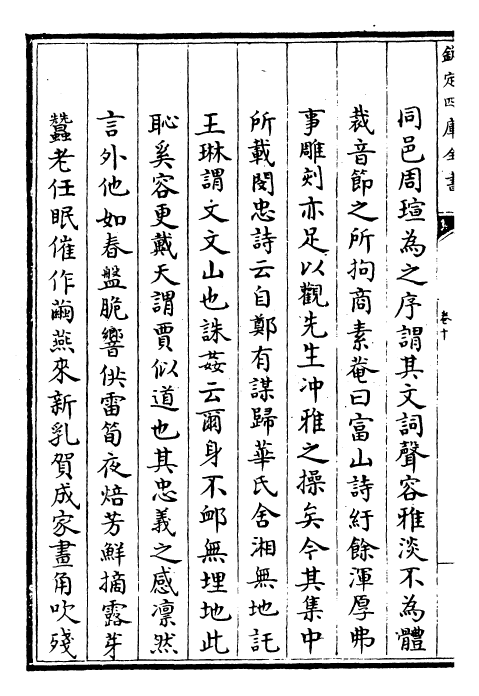 欽定四庫全書
卷十
同邑周瑄為之序謂其文詞聲容雅淡不為體
裁音節之所拘商素菴曰富山詩紆餘渾厚弗
事雕刻亦足以觀先生沖雅之操矣今其集中
所載閔忠詩云自鄭有謀歸華氏舍湘無地託
王琳謂文文山也誅姦云爾身不卹無埋地此
恥奚容更戴天謂賈似道也其忠義之感凛然
言外他如春盤脆響供雷筍夜焙芳鮮摘露芽
蠶老任眠催作繭燕來新乳賀成家畫角吹殘